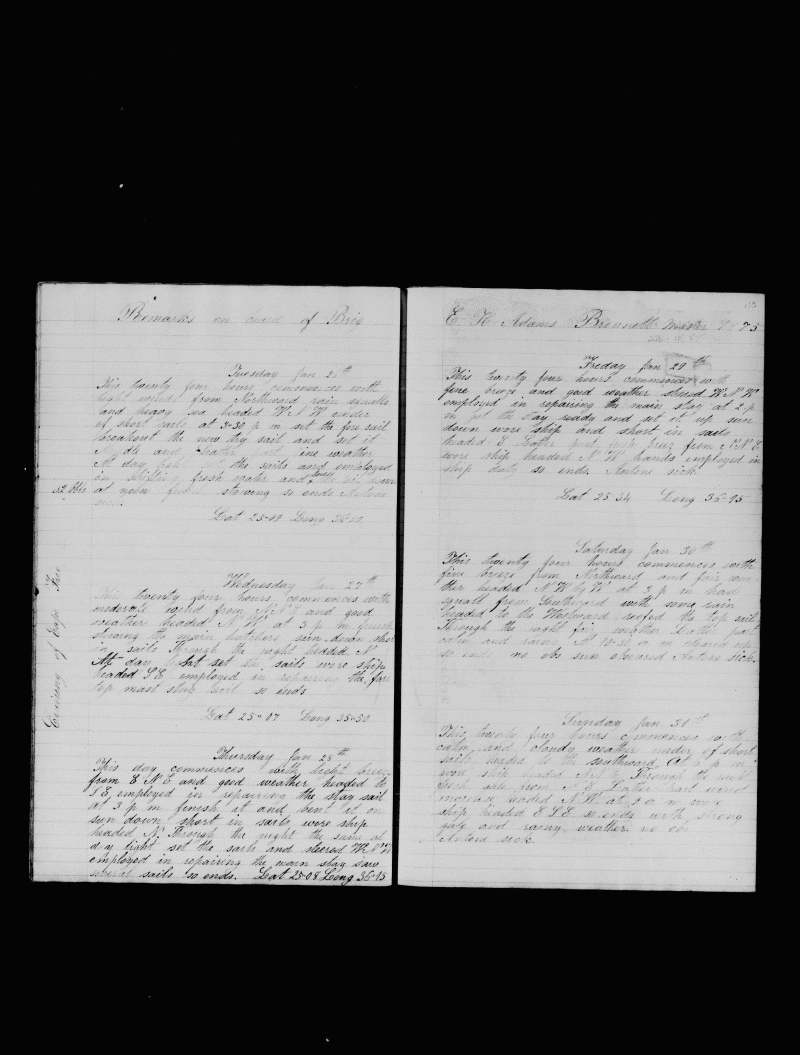 Remarks on board of Brig
Tuesday Jan 26th
This twenty four hours commences with
light winds from Northward rain squalls
and heavy sea headed W N W under
of short sails at 3-30 p m set the fore sail
breakout the new try sail and set it
Middle and Latter part fine weather
At day light set the sails and employed
in shifting fresh water and the oil down
52 bbls at noon finish stowing so ends Antone
sick.
Lat 25-09 Long 36-00
Wednesday Jan 27th
This twenty four hours commences with
moderate wind from N N E and good
weather headed N W at 3 p m finish
stowing the main hatches sun down short
in sails Through the night headed N
At day light set the sails wore ship
headed S E employed in repairing the fore
top mast stay sail so ends
Lat 25-07 Long 35-50
Cruising of Cape Frio
Thursday Jan 28th
This day commences with light breeze
from E N E and good weather headed to
S E employed in repairing the stay sail
at 3 p m finesh it and bent it on
sun down short in sails wore ship
headed N. Through the night the same at
day light set the sails and steered W N W
employed in repairing the main stay saw
several sails so ends. Lat 25-08 Long 36-15
E H Adams Brownell Master 75
Freday Jan 29th
This twenty four hours commences with
fine breeze and good weather steered W N W
employed in repairing the main stay at 2 p
m got the stay ready and set it up sun
down wore ship and short in sails
headed E Latter part fresh breez from N N E
wore ship headed N W hands employed in
ship duty so ends. Antone sick.
Lat 25 34 Long 36-45
Saturday Jan 30th
This twenty four hours commences with
fine breeze from Northward and fair wea
ther headed N W by W at 3 p m had
squall from Southward with some rain
headed to the Westward reefed the top sail
Through the night fine weather Latter part
calm and rainy At 10-30 a m cleared up
so ends no obs sun obscured Antone sick.
Sunday Jan 31st
This twenty four hours commences with
calm and cloudy weather under of short
sails headed to the southward At 2 p m
wore ship headed N N E Through the night
fresh gale from N E Latter part wind
increase headed N W at 9 a m wore
ship headed E S E so ends with strong
gale and rainy weather no obs
Antone sick.